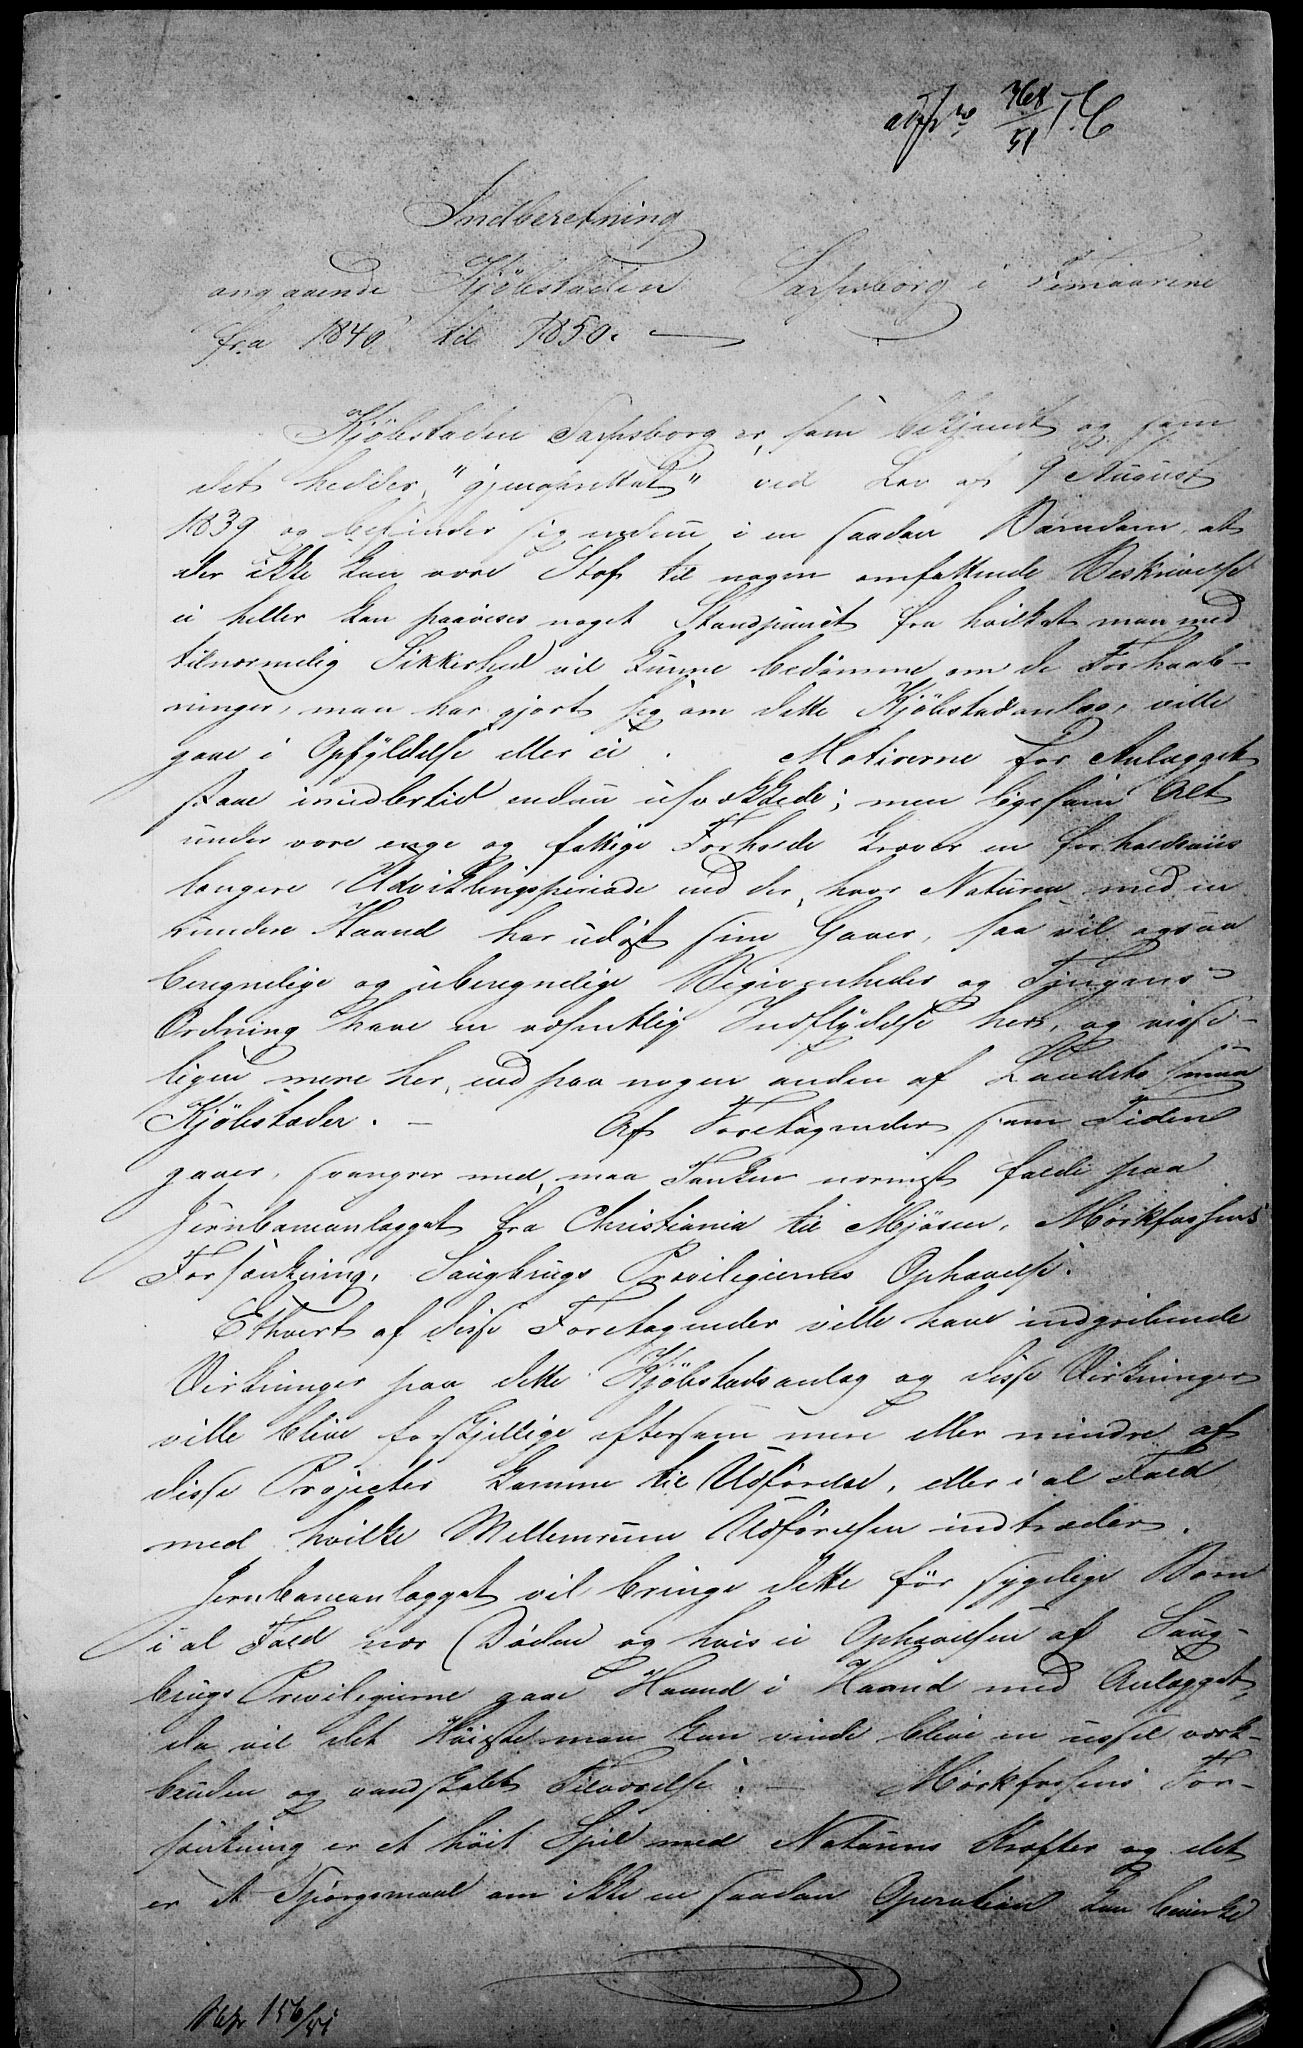 368/51
Indberetning
angaaende Kjöbstaden Sarpsborg i Femaarene
fra 1846 til 1850.
Kjöbstaden Sarpsborg er, som bekjendt og som
det hedder, "gjenoprettet" ved Lov af 9 August
1839 og befinder sig endnu i en saadan Barndom, at
der ikke kan være Stof til nogen omfattende Beskrivelse
ei heller kan paavises noget Standpunct fra hvilket man med
tilnærmelig Sikkerhed vil kunne bedömme om de Forhaab-
ninger, man har gjort sig om dette Kjöbstadanlæg, ville
gaae i Opfyldelse eller ei. Motiverne for Anlægget
staae imidlertid endnu usvækkede; men ligesom Alt
under vore enge og fattige Forholde kræver en forholdsviis
længere Udviklingsperiode end der, hvor Naturen med en
rundere Haand har udöst sine Gaver, saa vil ogsaa
beregnelige og uberegnelige Begivenheder og Tingenes
Ordning have en væsentlig Indflydelse her, og visse-
ligen mere her, end paa nogen anden af Landets smaa
Kjöbstæder. - Af Foretagender som Tiden
gaaer svanger med, maa Tanken nærmest falde paa
Jernbaneanlægget fra Christiania til Mjösen, Mörkfossens
Forsænkning, Saugbrugs Privilegiernes Ophævelse.
Ethvert af disse Foretagender ville have indgribende
Virkninger paa dette Kjöbstadsanlæg og disse Virkninger
ville blive forskjellige eftersom mere eller mindre af
disse Projecter komme til Udförelse, eller i al Fald
med hvilke Mellemrum Udförelsen indtræder.
Jernbaneanlægget vil bringe dette för sygelige Barn
i al Fald nær Döden og hvis ei Ophævelsen af Saug-
brugs Privilegierne gaae Haand i Haand med Anlægget,
da vil det Höieste man kan vinde blive en ussel værk-
bruden og vanskabt Tilværelse. - Mörkfossens For-
sænkning er et höit Spil med Naturens Kræfter og det
er et Spörgsmaal om ikke en saadan Operation kan bevirke
156/51